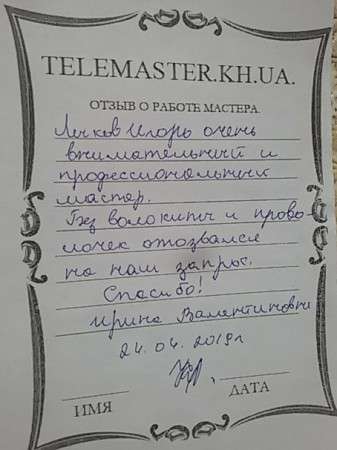 TELEMASTER.KH.UA.
ОТЗЫВ О РАБОТЕ МАСТЕРА.
Лычков Игорь очень
внимательный и
профессиональный
мастер.
Без волокиты и прово
лочек отозвался
на наш запрос.
Спасибо!
Ирина Валентиновна
24.04.2019г
ИМЯ
ДАТА